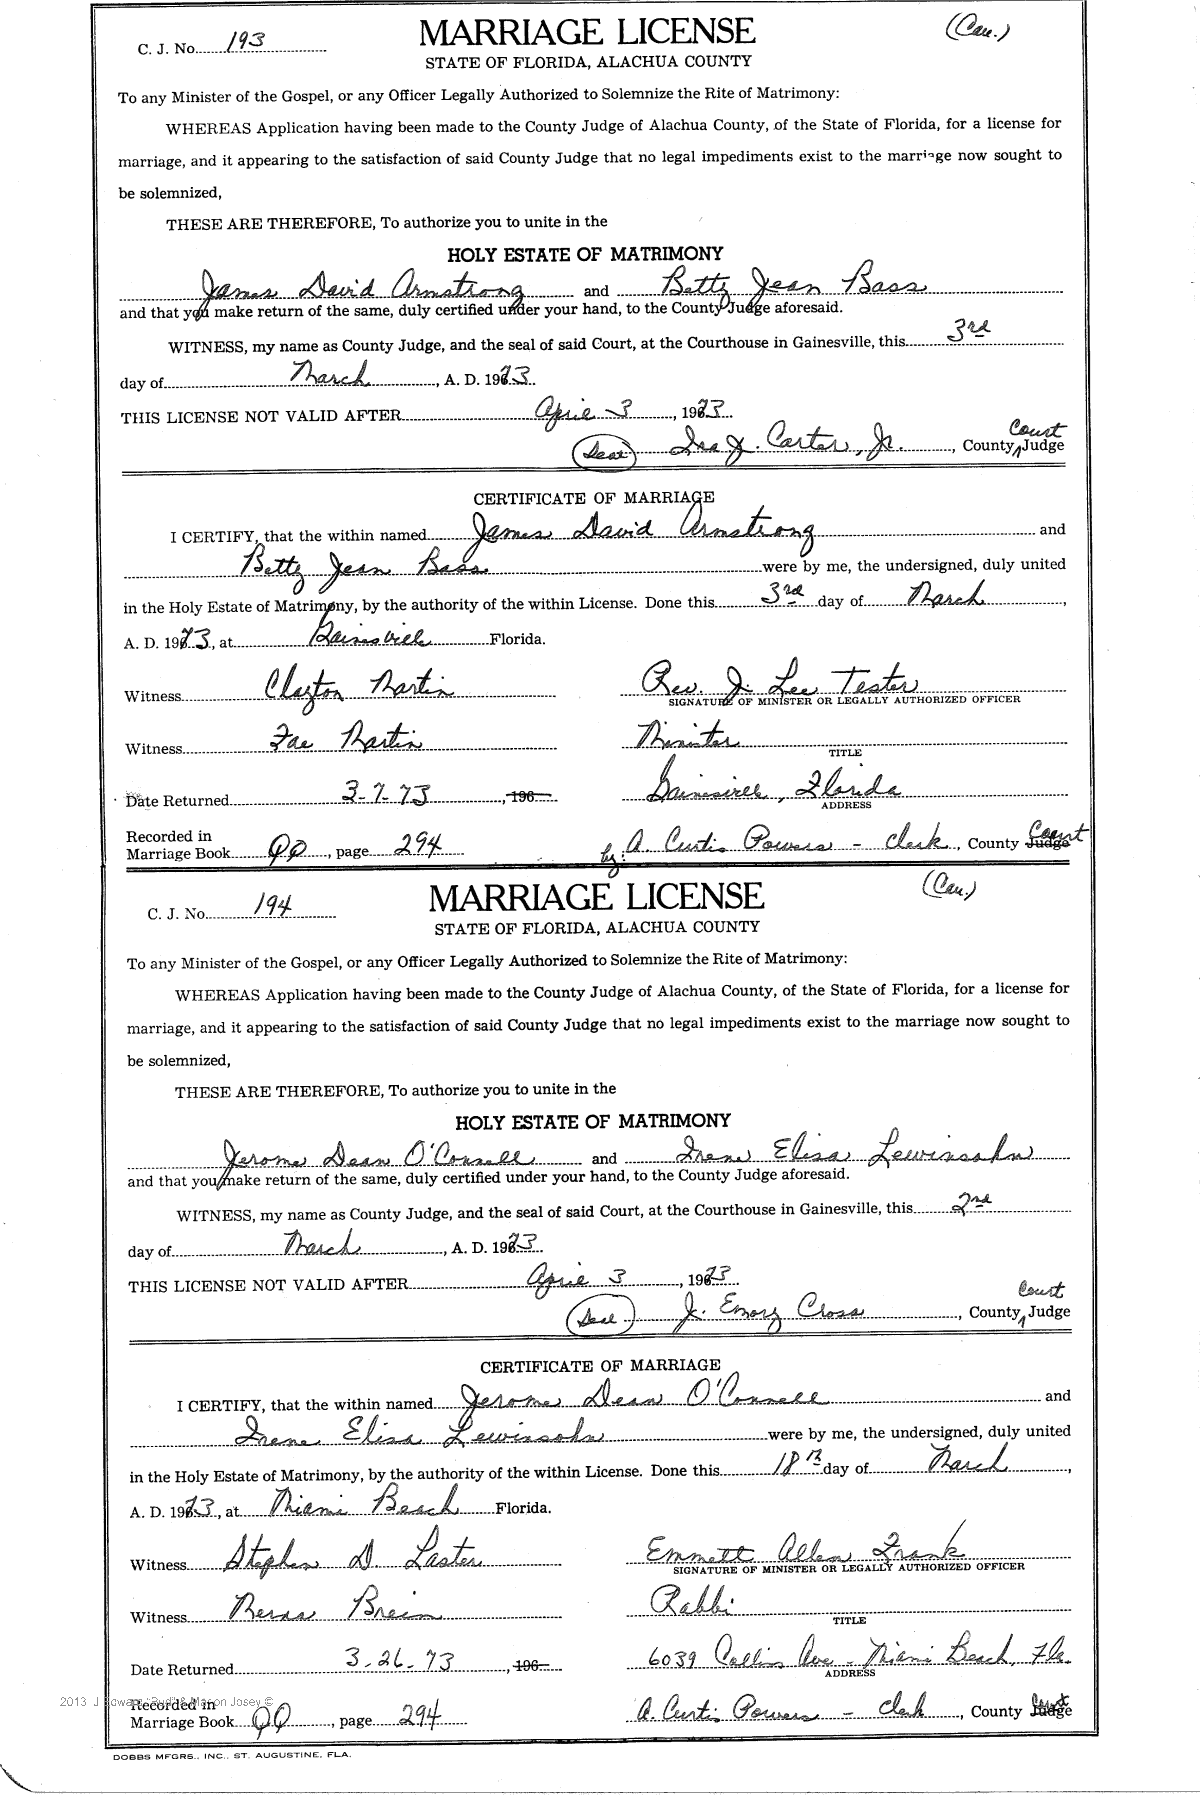 C. J. No. 193 MARRIAGE LICENSE (Cau.)
STATE OF FLORIDA, ALACHUA COUNTY
To any Minister of the Gospel, or any Officer Legally Authorized to Solemnize the Rite of Matrimony:
WHEREAS Application having been made to the County Judge of Alachua County, of the State of Florida, for a license for
marriage, and it appearing to the satisfaction of said County Judge that no legal impediments exist to the marriage now sought to
be solemnized,
THESE ARE THEREFORE, To authorize you to unite in the
HOLY ESTATE OF MATRIMONY
James David Armstrong and Betty Jean Bass
and that you make return of the same, duly certified under your hand, to the County Judge aforesaid.
WITNESS, my name as County Judge, and the seal of said Court, at the Courthouse in Gainesville, this 3rd
day of March, A. D. 1973
THIS LICENSE NOT VALID AFTER April 3, 1973
(Seal) Ira J. Carter, Jr., County Court Judge
CERTIFICATE OF MARRIAGE
I CERTIFY, that the within named James David Armstrong and
Betty Jean Bass were by me, the undersigned, duly united
in the Holy Estate of Matrimony, by the authority of the within License. Done this 3rd day of March,
A. D. 1973, at Gainesville Florida.
Witness Clayton Martin Rev. J. Lee Tester
SIGNATURE OF MINISTER OR LEGALLY AUTHORIZED OFFICER
Witness Fae Martin Minister
TITLE
Date Returned 3-7-73, 196 Gainesville, Florida
ADDRESS
Recorded in
Marriage Book QQ, page 294 by: A. Curtis Powers - Clerk, County Judge Court
C. J. No. 194 MARRIAGE LICENSE (Cau.)
STATE OF FLORIDA, ALACHUA COUNTY
To any Minister of the Gospel, or any Officer Legally Authorized to Solemnize the Rite of Matrimony:
WHEREAS Application having been made to the County Judge of Alachua County, of the State of Florida, for a license for
marriage, and it appearing to the satisfaction of said County Judge that no legal impediments exist to the marriage now sought to
be solemnized,
THESE ARE THEREFORE, To authorize you to unite in the
HOLY ESTATE OF MATRIMONY
Jerome Dean O'Connell and Irene Elisa Lewinsohn
and that you make return of the same, duly certified under your hand, to the County Judge aforesaid.
WITNESS, my name as County Judge, and the seal of said Court, at the Courthouse in Gainesville, this 2nd
day of March, A. D. 1973
THIS LICENSE NOT VALID AFTER April 3, 1973
(Seal) J. Emory Cross, County Court Judge
CERTIFICATE OF MARRIAGE
I CERTIFY, that the within named Jerome Dean O'Connell and
Irene Elisa Lewinsohn were by me, the undersigned, duly united
in the Holy Estate of Matrimony, by the authority of the within License. Done this 18th day of March,
A. D. 1973, at Miami Beach Florida.
Witness Stephen D. Laster Emmett Allen Frank
SIGNATURE OF MINISTER OR LEGALLY AUTHORIZED OFFICER
Witness Rabbi
TITLE
Date Returned 3-26-73, 196 6039 Collins Ave - Miami Beach, Fla.
ADDRESS
2013 J Edward "Bud" & Marion Josey ©
Recorded in
Marriage Book QQ, page 294 A. Curtis Powers - Clerk, County Judge Court
DOBBS MFGRS., INC., ST. AUGUSTINE, FLA.